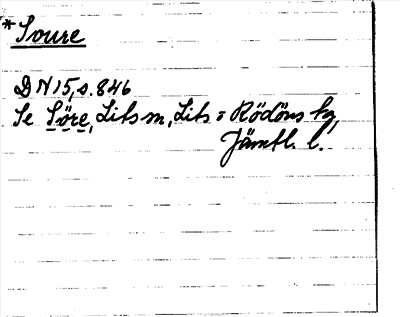 *Soure
DN 15, s. 846
Se Söre, Lits sn, Lits o Rödöns tg,
Jämtl. l.